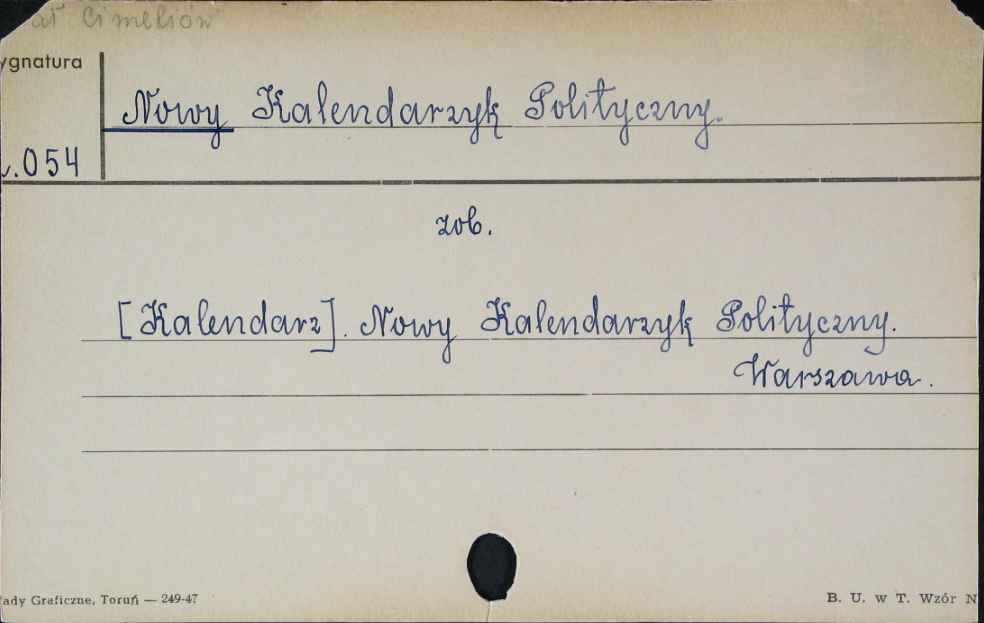 Cimeliów
ygnatura
Nowy Kalendarzyk Polityczny.
.054
zob.
[Kalendarz]. Nowy Kalendarzyk Polityczny.
Warszawa.
ady Graficzne, Toruń — 249-47
B. U. w T. Wzór N